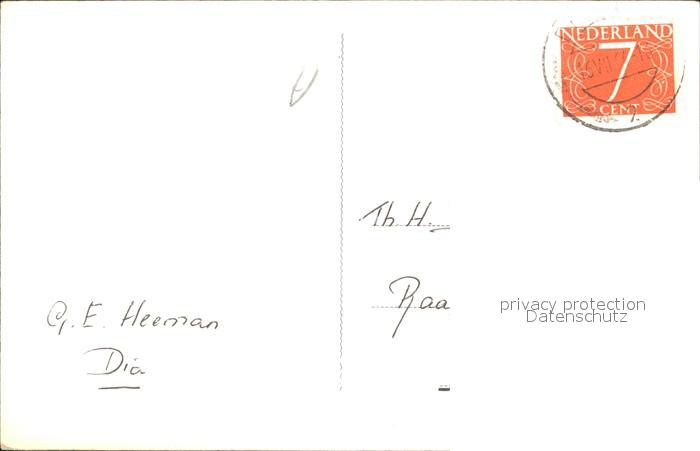 NEDERLAND
7
CENT
Th. H.
Raa
privacy protection
Datenschutz
G. E. Heeman
Dia